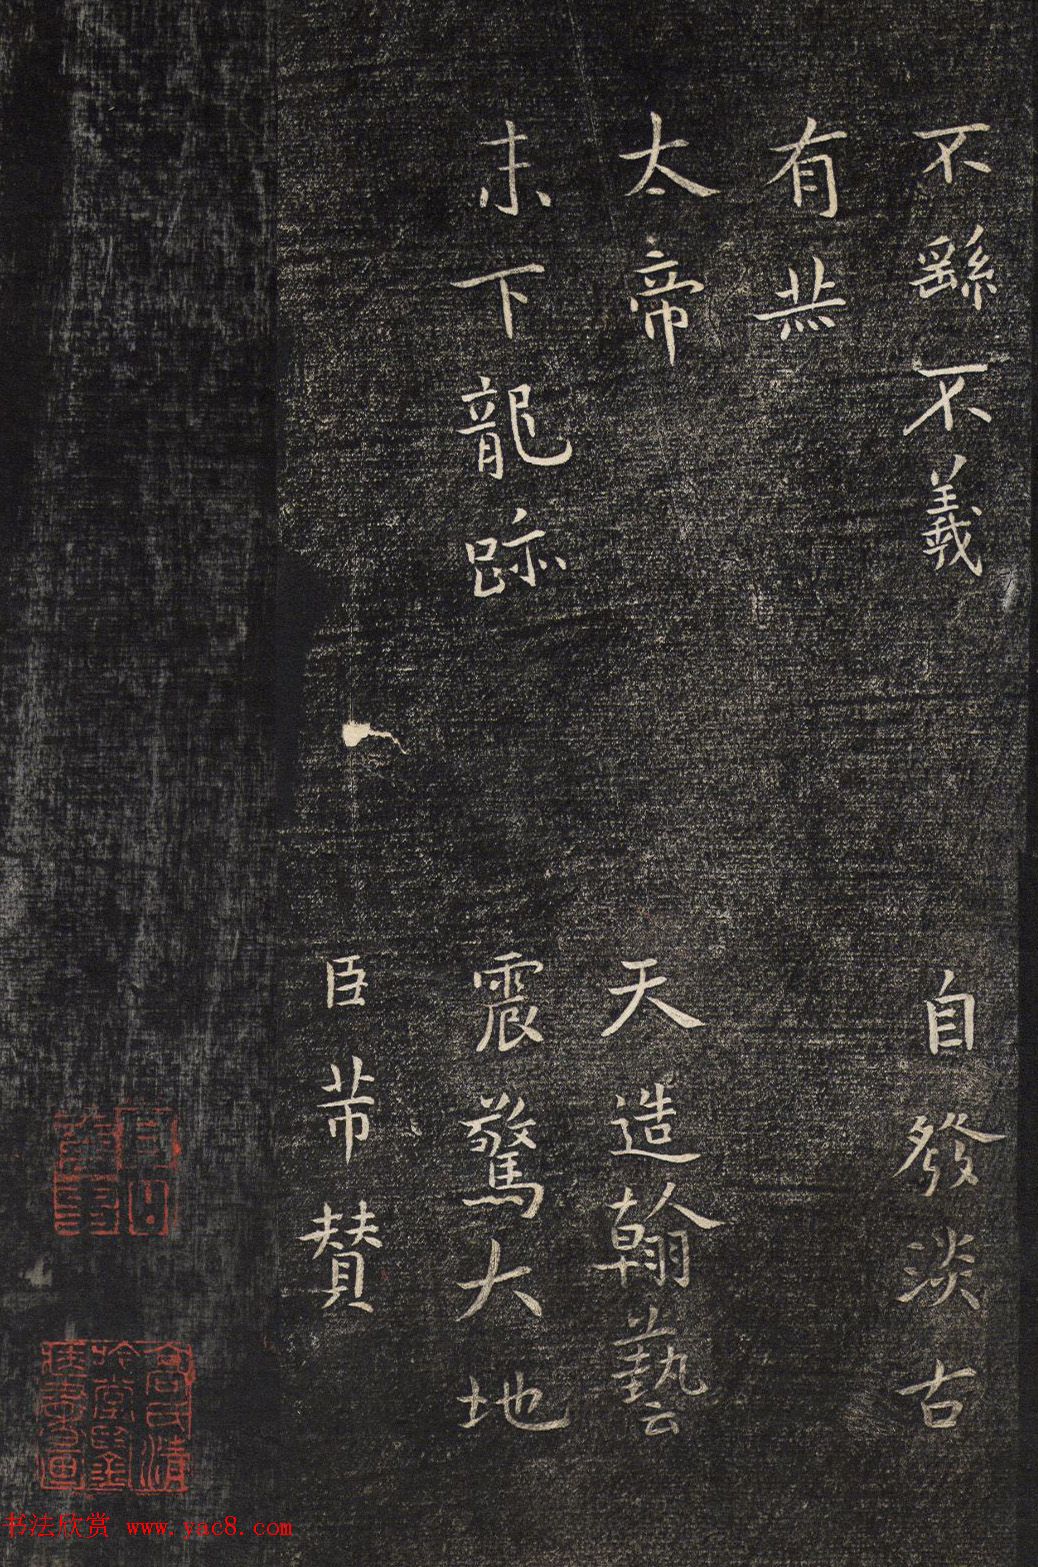 不繇不羲　自發淡古
有
太帝　天造翰藝
下龍跡　震驚大地
臣芾賛
高氏清
吟堂
书法欣赏 www.yac8.com